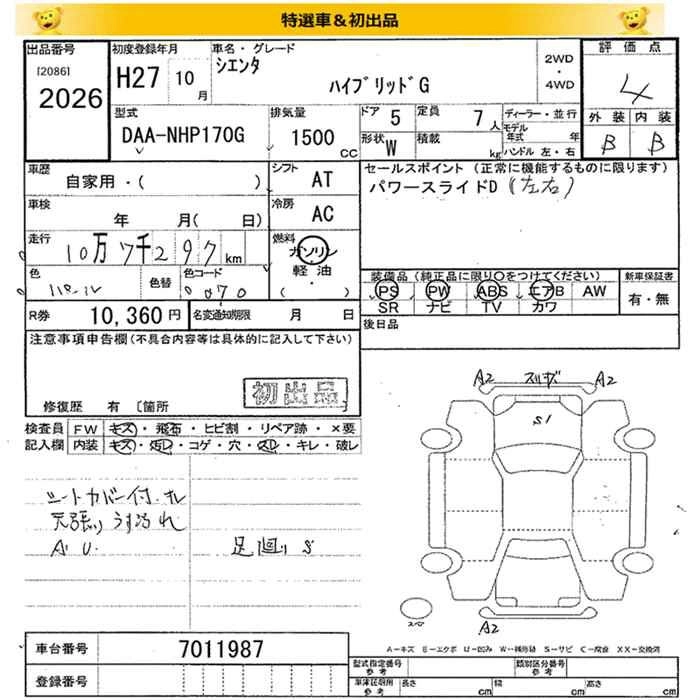 特選車＆初出品
出品番号 [2086] 2026
初度登録年月 H27 10月
車名・グレード シエンタ ハイブリッドG
2WD・4WD
評価点 4
外装 B 内装 B
型式 DAA-NHP170G
排気量 1500 CC
ドア 5 定員 7人
形状 W 積載 kg
ディーラー・並行
モデル年式 年
ハンドル 左・右
車歴 自家用・( )
シフト AT
セールスポイント（正常に機能するものに限ります）
パワースライドD (左右)
車検 年 月( 日)
冷房 AC
走行 10万7千297km
燃料 ガソリン 軽油 ( ・ )
色 色替 色コード 070
装備品（純正品に限り○をつけてください）
PS PW ABS エアB AW
SR ナビ TV カワ
新車保証書 有・無
R券 10,360円
名変通知期限 月 日
後日品
注意事項申告欄(不具合内容等は具体的に記入して下さい)
初出品
修復歴 有 〔箇所
検査員記入欄
FW キズ・飛石・ヒビ割・リペア跡・×要
内装 キズ・汚レ・コゲ・穴・スレ・キレ・破レ
シートカバー付 オレ
天張りうす汚れ
A U 足廻り S
A2 スリキズ A2
S1
A2
スペ
A-キズ E-エクボ U-凹み W-補修跡 S-サビ C-腐食 XX-交換済
車台番号 7011987
登録番号
型式指定番号 参考
類別区分番号 参考
車庫証明用 参考 長さ cm 幅 cm 高さ cm